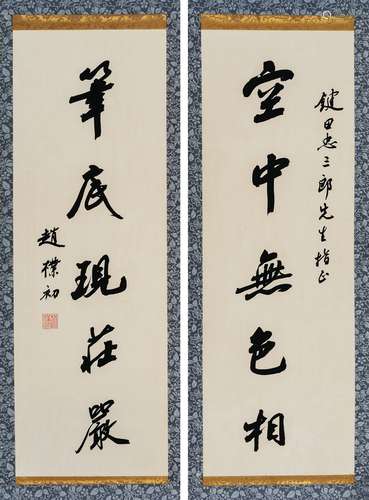 鍵田忠三郎先生指正
空中無色相
筆底現莊嚴
趙樸初